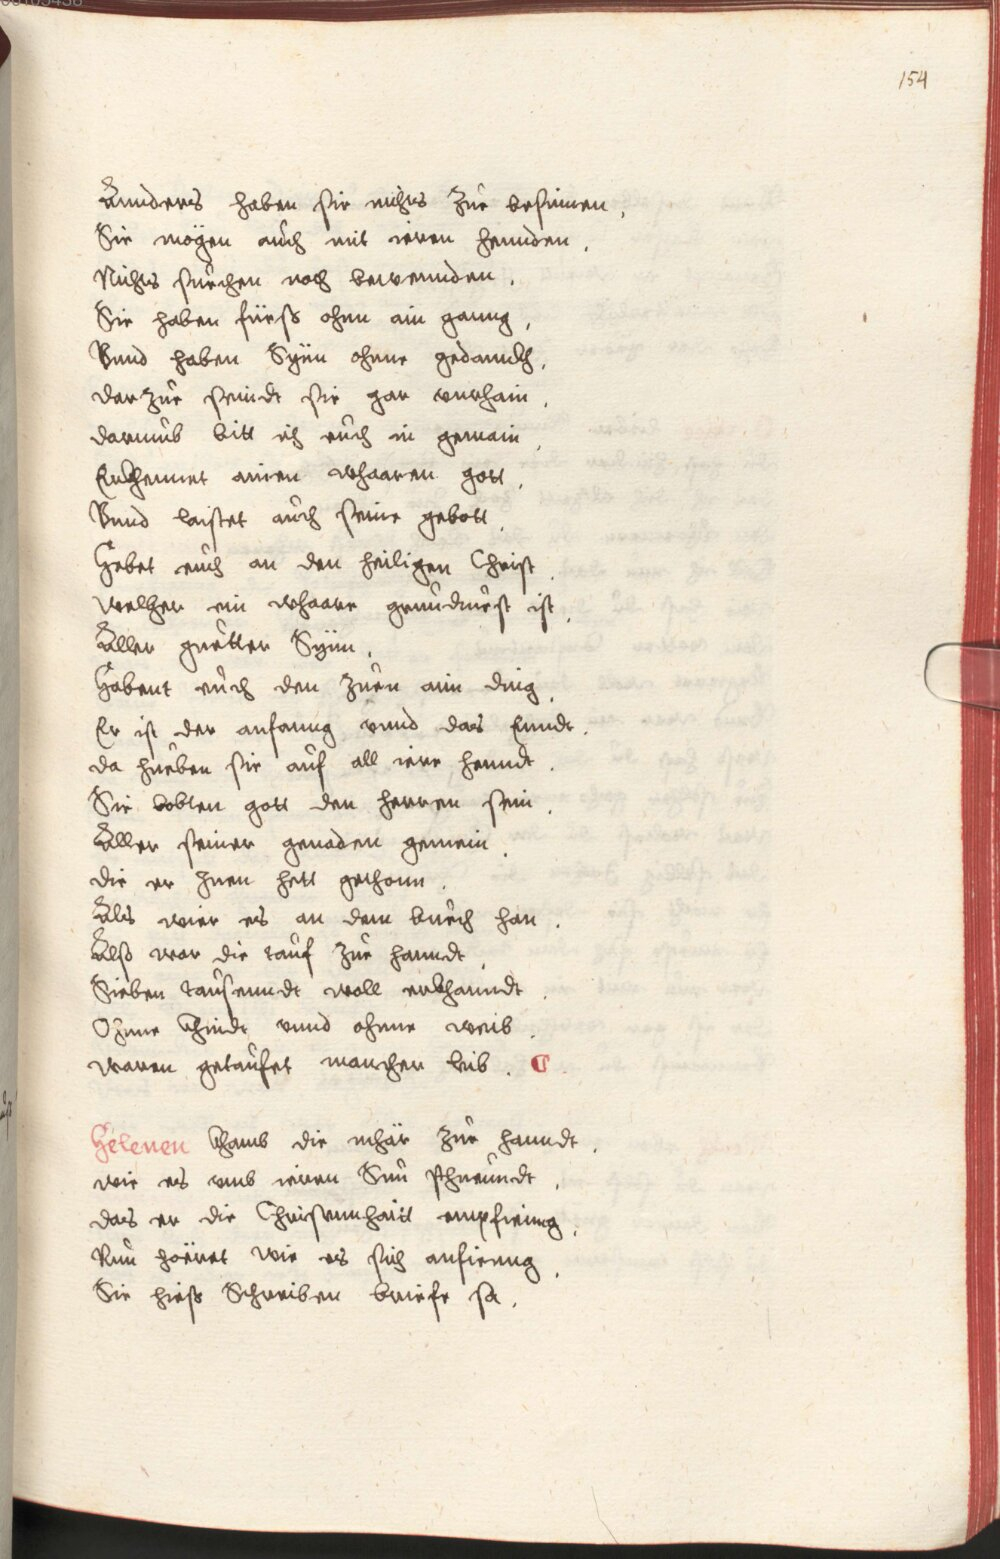 154
Annders haben sie nichts zue besinnen,
Sie mögen auch mit ieren hennden,
Nichts suechen noch bewennden,
Sie haben füess ohne ain ganng,
Vnnd haben Synn ohnne gedannckh,
darzue seindt sie gar vnrhain,
darumb bitt ich euch in gemain,
Erckhennet ainen whaaren gott,
Vnnd laistet auch seine gebott,
Hebet euch an den heiligen Christ,
welcher ein whaare grundtuest ist,
Aller guetter Synn,
Habent euch den zuen ain ding,
Er ist der anfanng vnnd das Ennde,
da hueben sie auf all iere henndt,
Sie lobten gott den herren sein,
Aller seiner genaden gemein,
die er Jnen hett gethonn,
Als wier es an dem buech han,
Alß war die tauf zue hanndt,
Sieben tausenndt woll erkhanndt,
Ohnne Khindt vnnd ohnne weib,
waren getaufet mancher leib,
Helenen Khamb die mhär zue hanndt,
wie es vmb ieren Sun sthuendt,
das er die Christennhaitt empfieng,
Nun hoëret wie es sich anfienng,
Sie hieß Schreiben briefe sa,